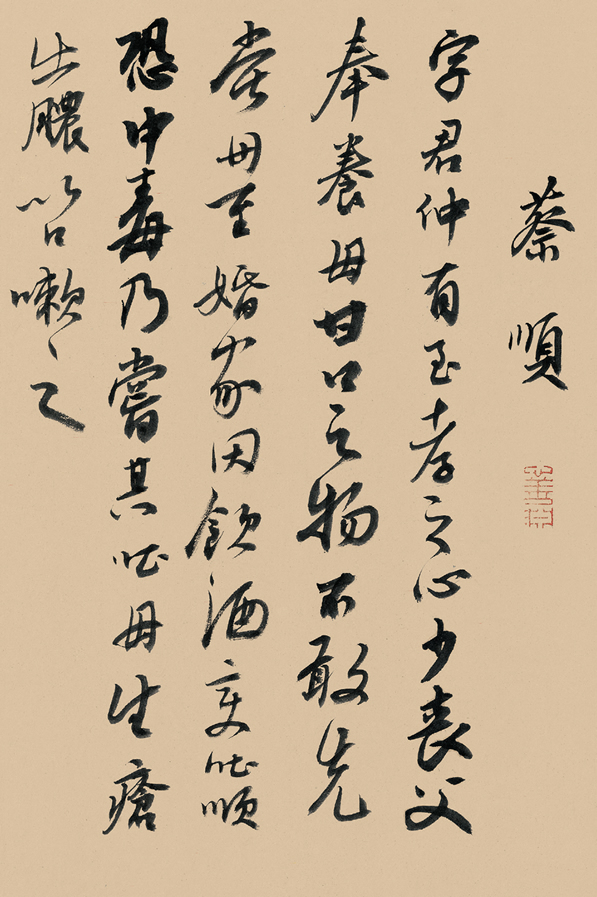 蔡順
字君仲有至孝之心少喪父
奉養母甘口之物不敢先
嘗母至婚家因飲酒変吐順
恐中毒乃嘗其吐母生瘡
出膿以口嗽之